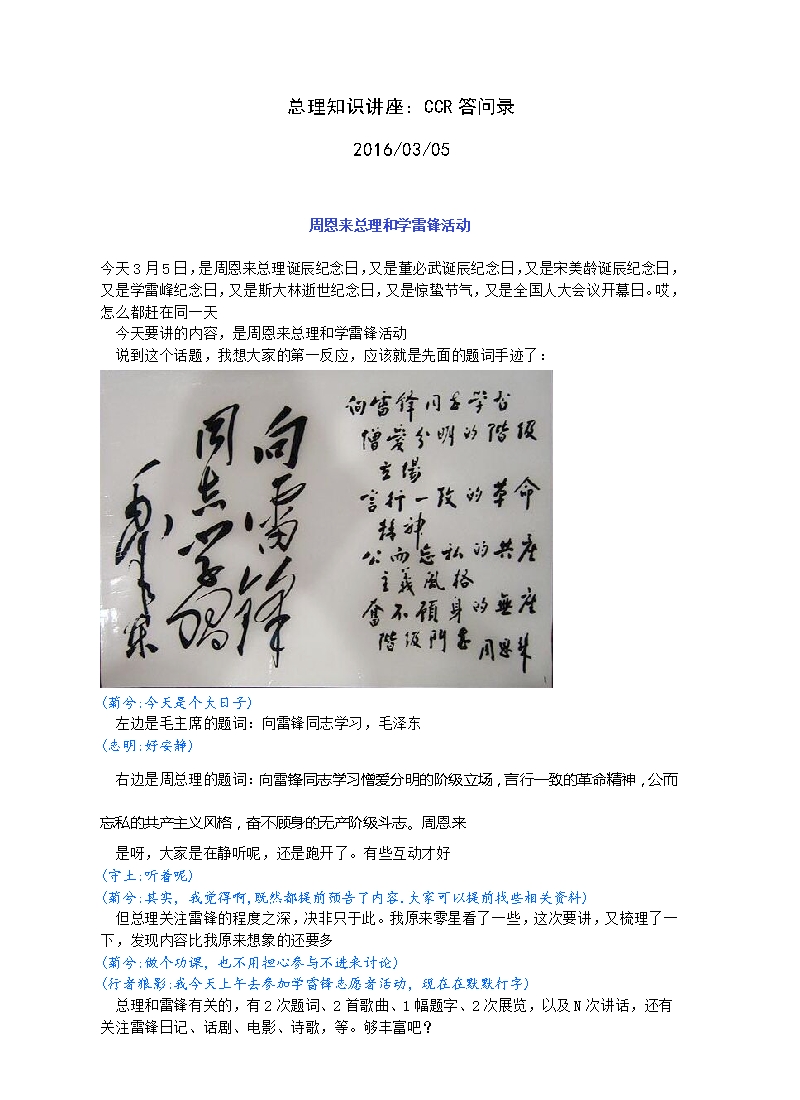 总理知识讲座：CCR答问录
2016/03/05
周恩来总理和学雷锋活动
今天3月5日，是周恩来总理诞辰纪念日，又是董必武诞辰纪念日，又是宋美龄诞辰纪念日，
又是学雷峰纪念日，又是斯大林逝世纪念日，又是惊蛰节气，又是全国人大会议开幕日。哎，
怎么都赶在同一天
今天要讲的内容，是周恩来总理和学雷锋活动
说到这个话题，我想大家的第一反应，应该就是先面的题词手迹了：
向雷锋
同志学习
毛泽东
向雷锋同志学習
憎爱分明的階级
立場
言行一致的革命
精神
公而忘私的共産
主義風格
奮不顧身的無産
階级鬥志
周恩来
(菊兮:今天是个大日子)
左边是毛主席的题词：向雷锋同志学习，毛泽东
(志明:好安静)
右边是周总理的题词：向雷锋同志学习憎爱分明的阶级立场，言行一致的革命精神，公而
忘私的共产主义风格，奋不顾身的无产阶级斗志。周恩来
是呀，大家是在静听呢，还是跑开了。有些互动才好
(守土:听着呢)
(菊兮:其实，我觉得啊,既然都提前预告了内容.大家可以提前找些相关资料)
但总理关注雷锋的程度之深，决非只于此。我原来零星看了一些，这次要讲，又梳理了一
下，发现内容比我原来想象的还要多
(菊兮:做个功课，也不用担心参与不进来讨论)
(行者狼影:我今天上午去参加学雷锋志愿者活动，现在在默默打字)
总理和雷锋有关的，有2次题词、2首歌曲、1幅题字、2次展览，以及N次讲话，还有
关注雷锋日记、话剧、电影、诗歌，等。够丰富吧？